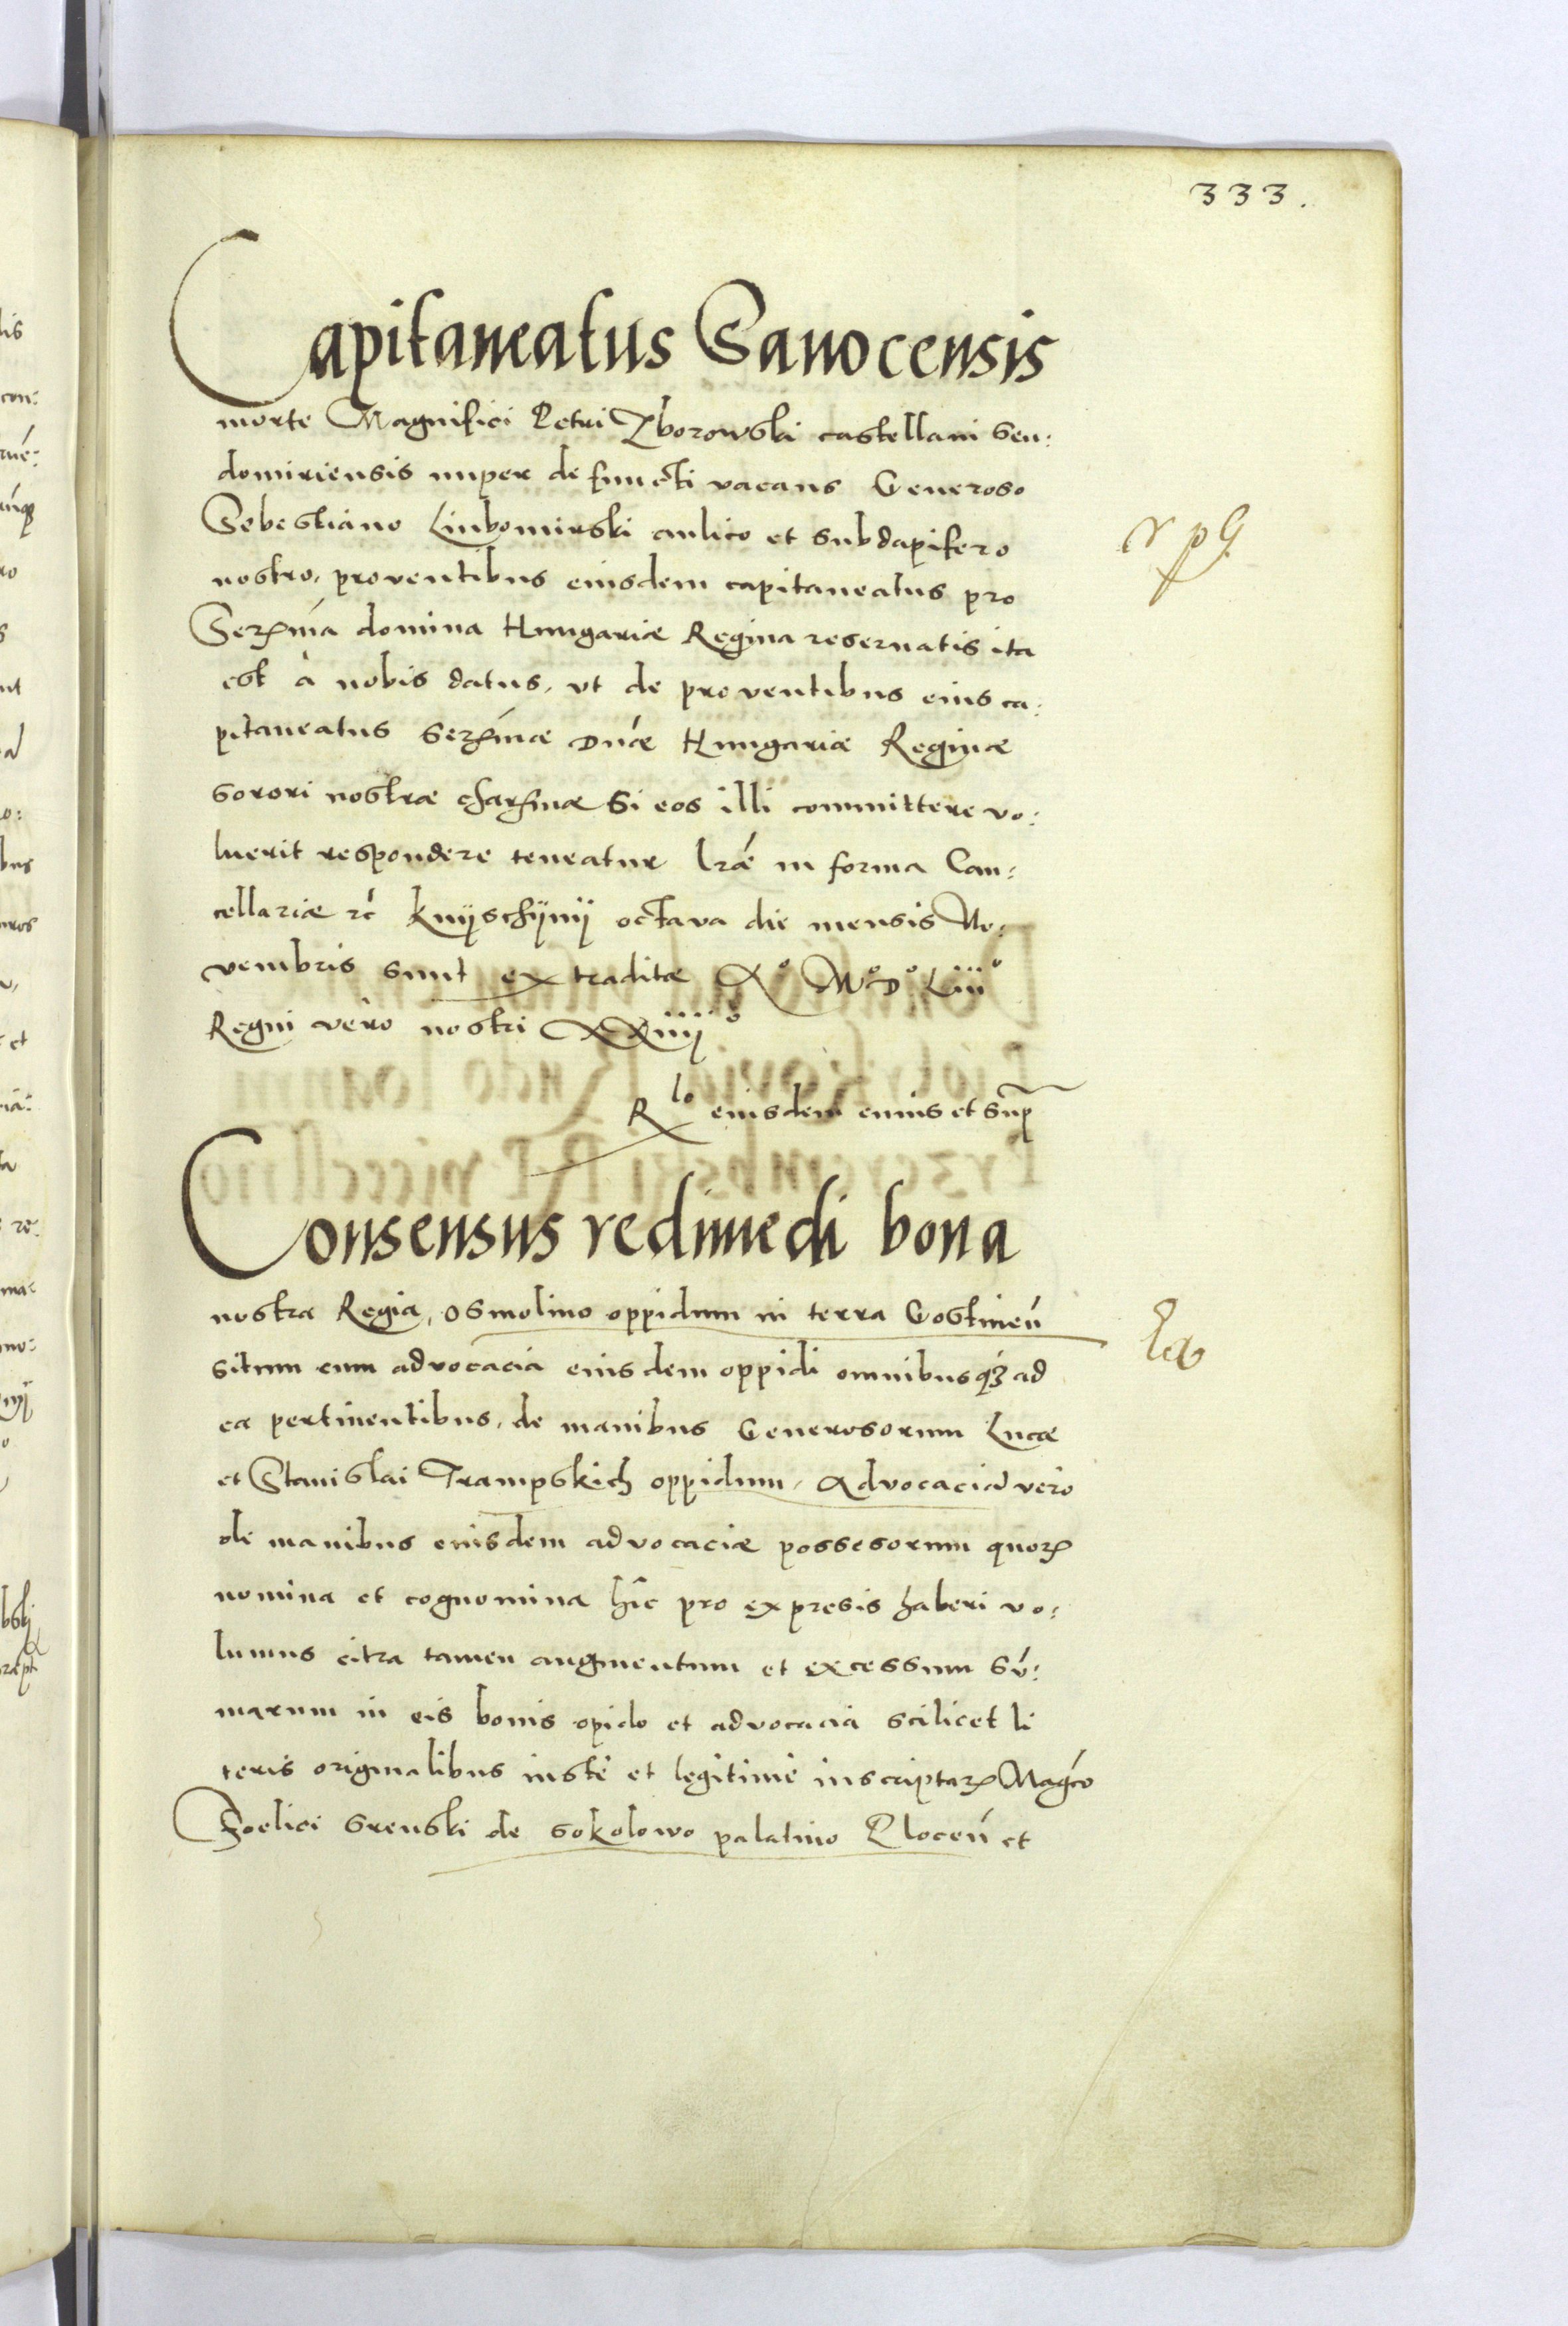 333.
Capitaneatus Sanocensis
morte Magnifici Petri Zborowski castellani Sen:
domiriensis nuper defuncti vacans Generoso
Sebestiano Liubomirski aulico et subdapifero
nostro, proventibus eiusdem capitaneatus pro
Serꝫma domina Hungariæ Regina reservatis ita
est à nobis datus, vt de proventibus eius ca:
pitaneatus serꝫmæ dnæ Hungariæ Reginæ
sorori nostræ charꝫmæ si eos illi committere vo:
luerit respondere teneatur lræ in forma Can:
cellariæ rc̃ knyschÿnÿ octava die mensis No:
vembris sunt extraditæ Aº Mº Dº Liiiº
Regni verò nostri XXiiiiº
Rlo eiusdem cuius et supꝫ
Consensus redimedi bona
nostra Regia, osmolino oppidum in terra Gostineń
situm cum advocacia eiusdem oppidi omnibusqꝫ ad
ea pertinentibus, de manibus Generosorum Lucæ
et Stanislai Trampskich oppidum, Advocaciā verò
de manibus eiusdem advocaciæ possesorum quorꝫ
nomina et cognomina hîc pro expresis haberi vo:
lumus citra tamen augmentum et excessum sū:
marum in eis bonis opido et advocacia scilicet li
teris originalibus iustè et legitimè inscriptarꝫ Magco
Foelici Srenski de sokolowo palatino Ploceń et